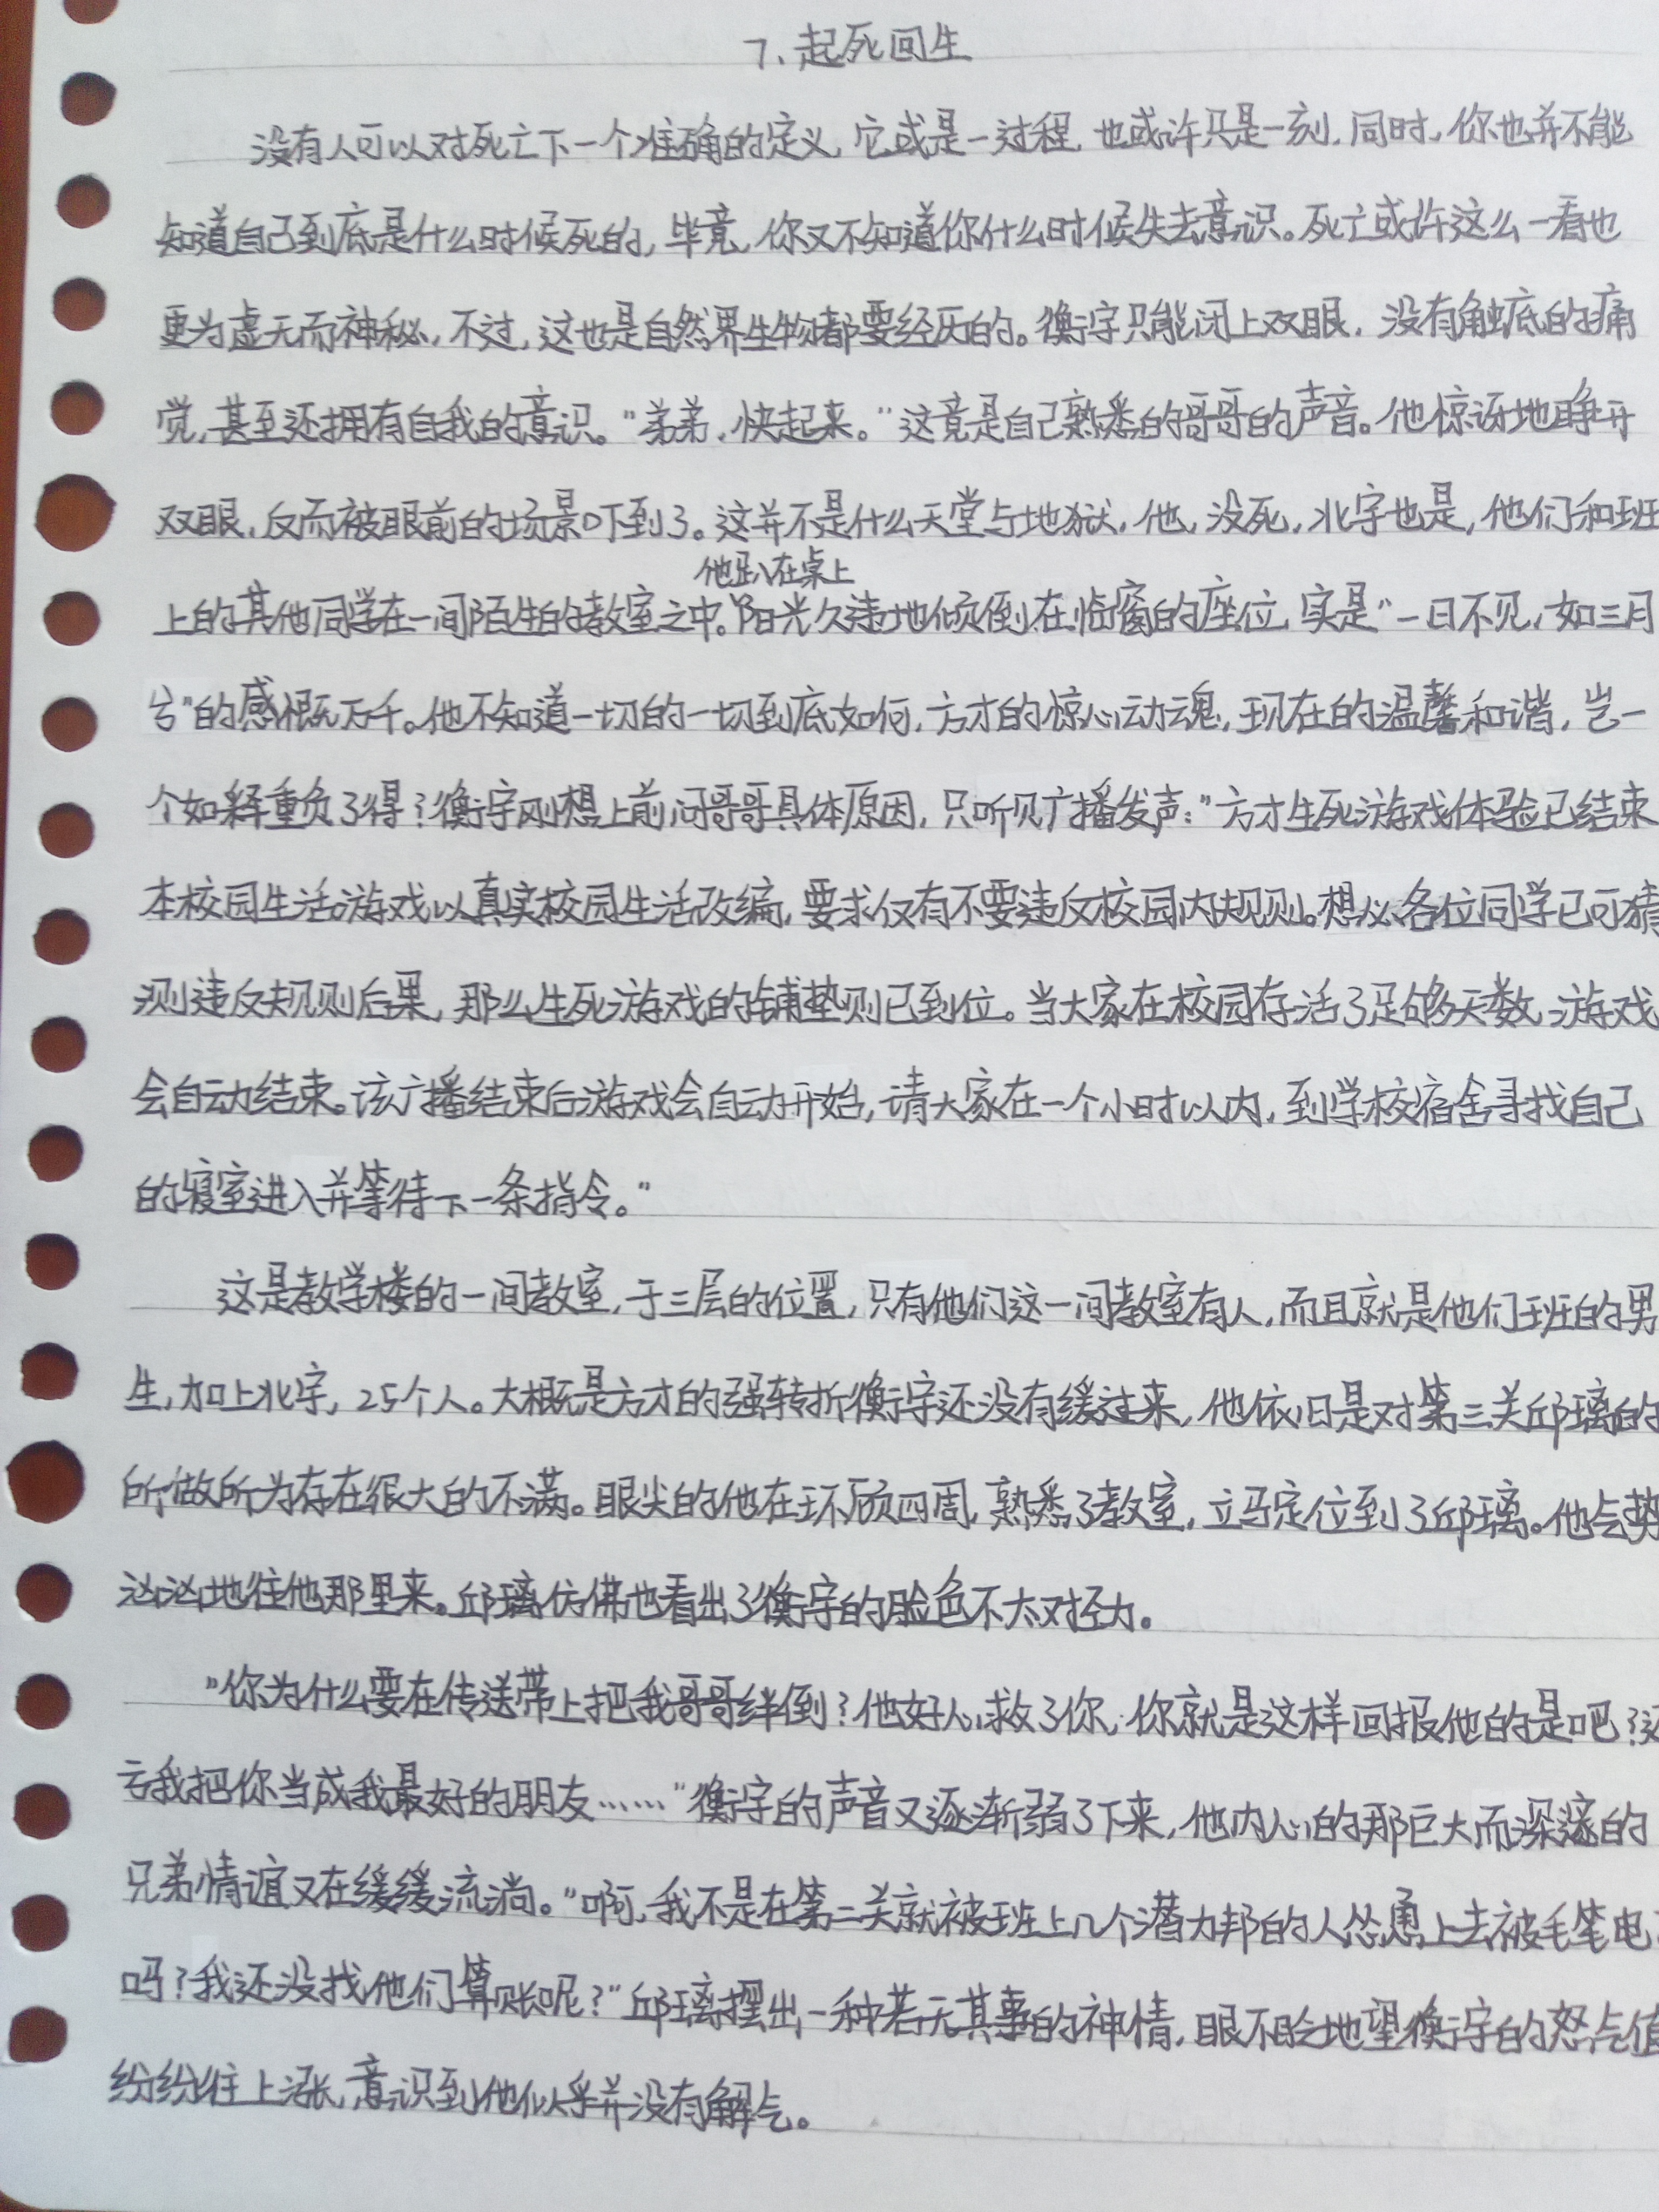 7、起死回生
没有人可以对死亡下一个准确的定义,它或是一过程,也或许只是一刻,同时,你也并不能
知道自己到底是什么时候死的,毕竟,你又不知道你什么时候失去意识。死亡或许这么一看也
更为虚无而神秘,不过,这也是自然界生物都要经历的。衡宇只能闭上双眼,没有触底的痛
觉,甚至还拥有自我的意识。"弟弟,快起来。"这竟是自己熟悉的哥哥的声音。他惊讶地睁开
双眼,反而被眼前的场景吓到了。这并不是什么天堂与地狱,他,没死,北宇也是,他们和班
他趴在桌上
上的其他同学在一间陌生的教室之中。阳光久违地倾倒在临窗的座位,实是"一日不见,如三月
兮"的感慨万千。他不知道一切的一切到底如何,方才的惊心动魂,现在的温馨和谐,岂一
个如释重负了得?衡宇刚想上前问哥哥具体原因,只听见广播发声:"方才生死游戏体验已结束
本校园生活游戏以真实校园生活改编,要求仅有不要违反校园内规则。想必各位同学已可猜
测违反规则后果,那么生死游戏的铺垫则已到位。当大家在校园存活了足够天数,游戏
会自动结束。该广播结束后游戏会自动开始,请大家在一个小时以内,到学校宿舍寻找自己
的寝室进入并等待下一条指令。"
这是教学楼的一间教室,于三层的位置,只有他们这一间教室有人,而且就是他们班的男
生,加上北宇,25个人。大概是方才的强转折衡宇还没有缓过来,他依旧是对第三关邱璃的
所做所为存在很大的不满。眼尖的他在环顾四周,熟悉了教室,立马定位到了邱璃。他气势
汹汹地往他那里来。邱璃仿佛也看出了衡宇的脸色不太对劲。
"你为什么要在传送带上把我哥哥绊倒?他好心救了你,你就是这样回报他的是吧?还
亏我把你当成我最好的朋友……"衡宇的声音又逐渐弱了下来,他内心的那巨大而深邃的
兄弟情谊又在缓缓流淌。"啊,我不是在第二关就被班上几个潜力邦的人怂恿上去被毛笔电
吗?我还没找他们算账呢?"邱璃摆出一种若无其事的神情,眼不眨地望衡宇的怒气值
纷纷往上涨,意识到他似乎并没有解气。